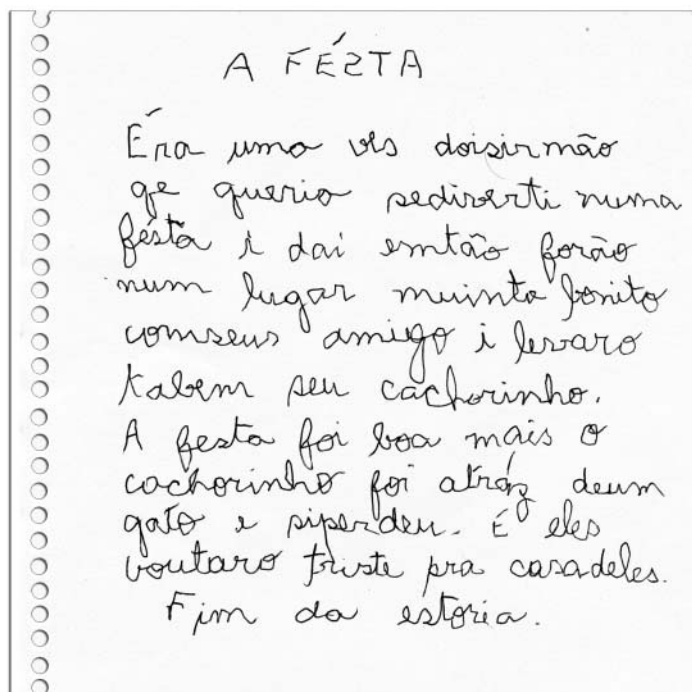 A FÉSTA
Éra uma vês doisirmão
qe queria sediverti numa
fésta i dai emtão forão
num lugar muinta bonito
comseus amigo i levaro
tabem seu cachorinho.
A festa foi boa mais o
cachorinho foi atráz deum
gato e siperdeu. E eles
voutaro triste pra casadeles.
Fim da estoria.